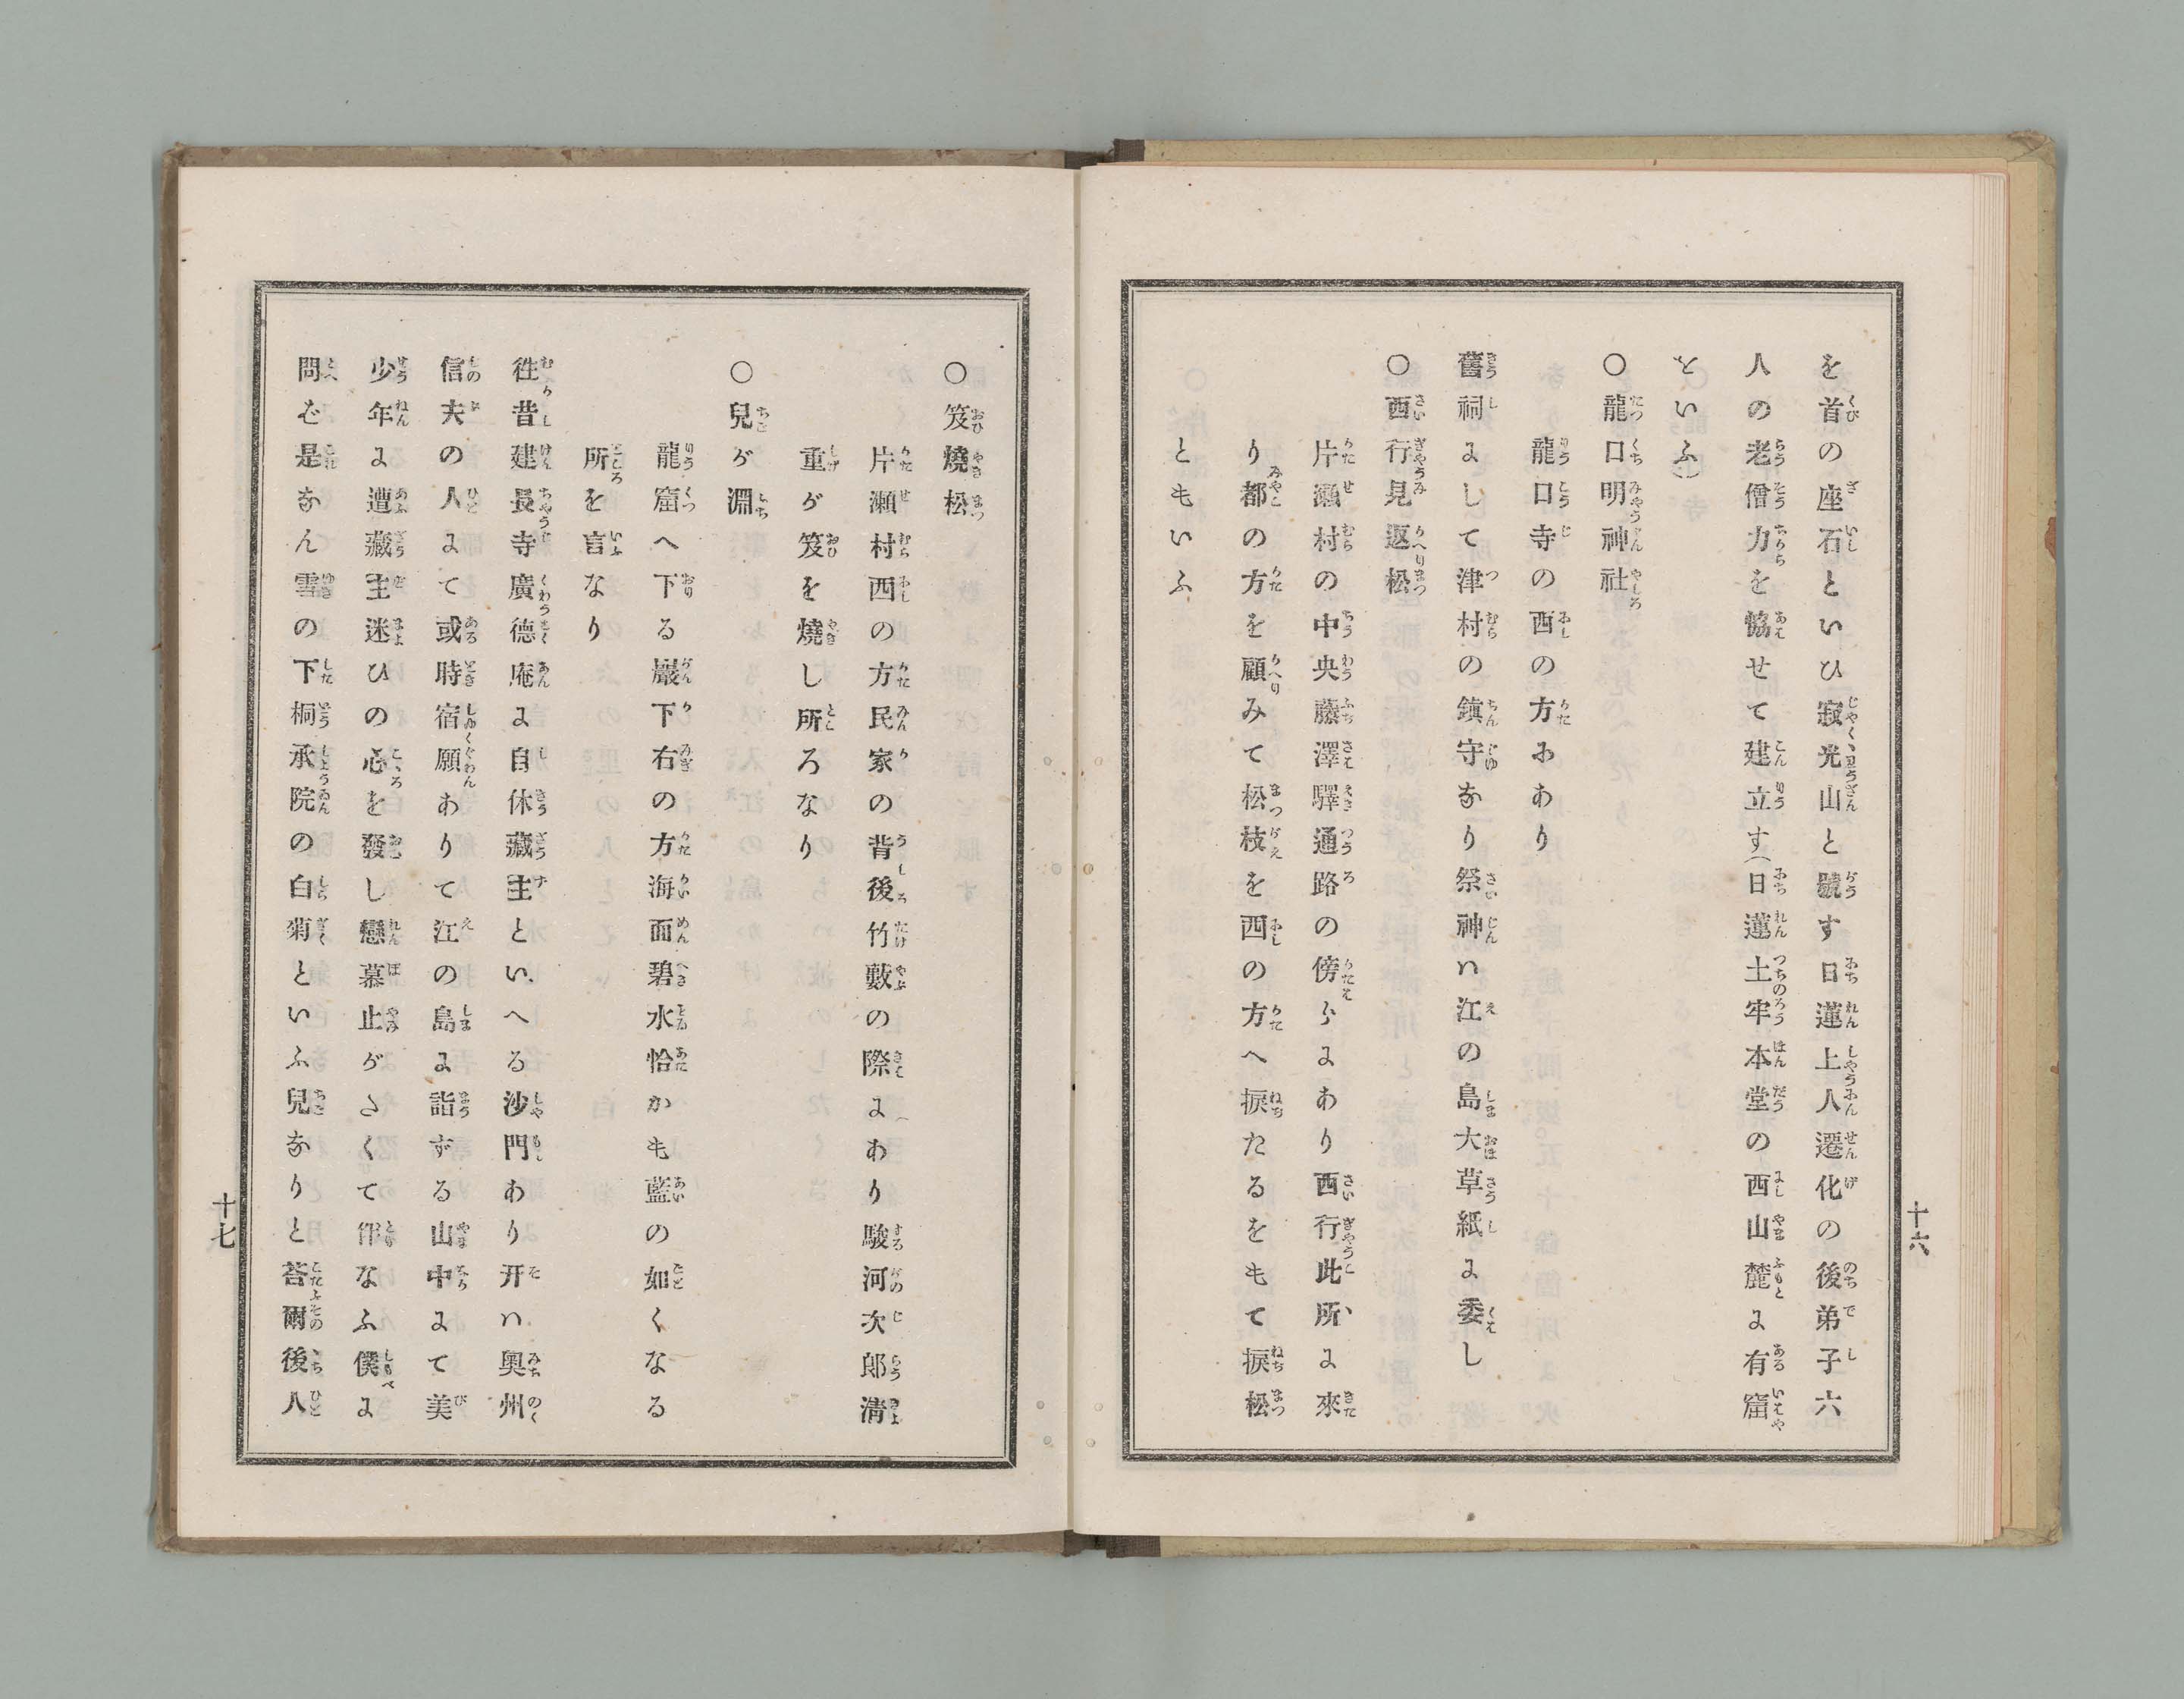 を首の座石といひ寂光山と號す日蓮上人遷化の後弟子六
人の老僧力を恊せて建立す（日蓮土牢本堂の西山麓に有窟
といふ）
〇龍口明神社
龍口寺の西の方にあり
舊祠にして津村の鎮守なり祭神ハ江の島大草紙に委し
〇西行見返松
片瀬村の中央藤澤驛通路の傍らにあり西行此所に來
り都の方を顧みて松枝を西の方へ捩たるをもて捩松
ともいふ
十六
〇笈燒松
片瀬村西の方民家の背後竹藪の際にあり駿河次郎淸
重が笈を燒し所ろなり
〇兒が淵
龍窟へ下る巖下右の方海面碧水恰かも藍の如くなる
所を言なり
徃昔建長寺廣德庵に自休藏主といへる沙門あり开ハ奥州
信夫の人にて或時宿願ありて江の島に詣ずる山中にて美
少年に遭藏主迷ひの心を發し戀慕止がたくて伴なふ僕に
問ば是なん雪の下桐承院の白菊といふ兒なりと荅爾後人
十七